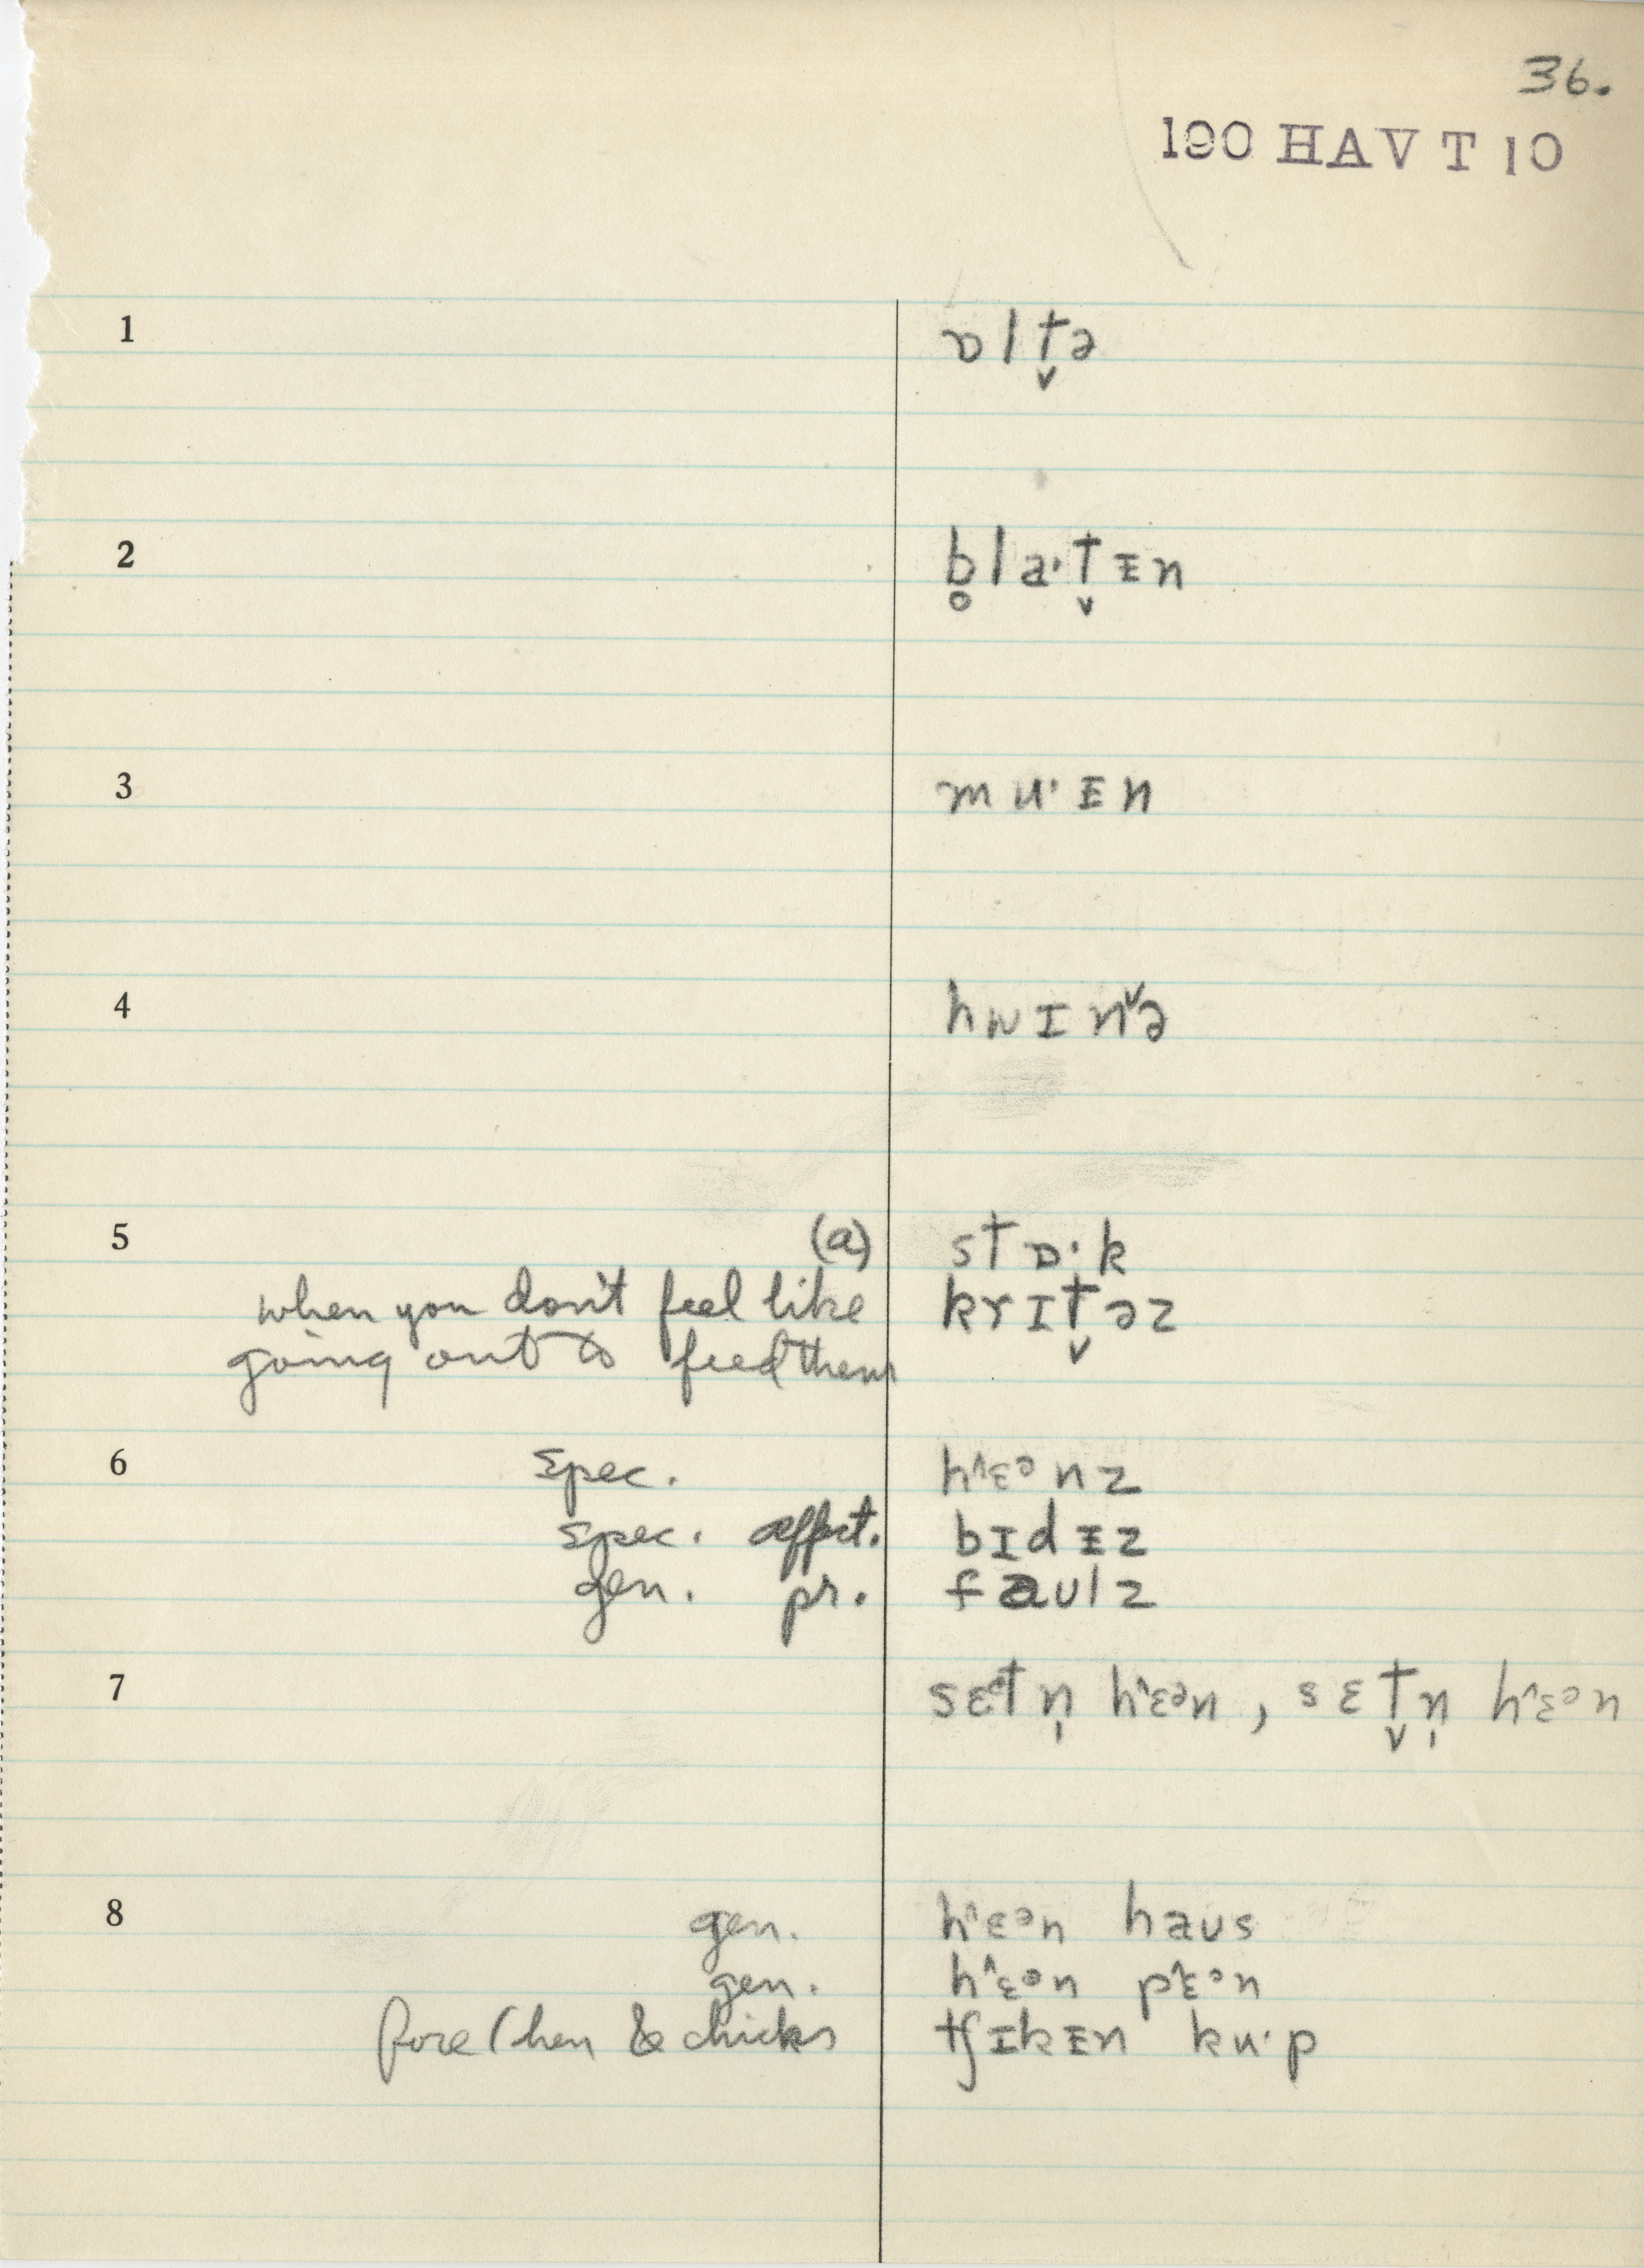 36.
190 HAVT 10
1 ɒlt̬ə
2 b̥laˑt̬ᵻn
3 muˑᵻn
4 hwɪnˇə
5 (a) stɒˑk
when you don't feel like krɪt̬əz
going out to feed them
6 spec. hˆɛᵊnz
spec. affect. bɪdᵻz
gen. pr. faulz
7 sɛᵊtn̩ hˆɛᵊn, sɛt̬n̩ hˆɛᵊn
8 gen. hˆɛᵊn haus
gen. hˆɛᵊn pˆɛᵊn
hen & chicks tʃɪkᵻn kuˑp